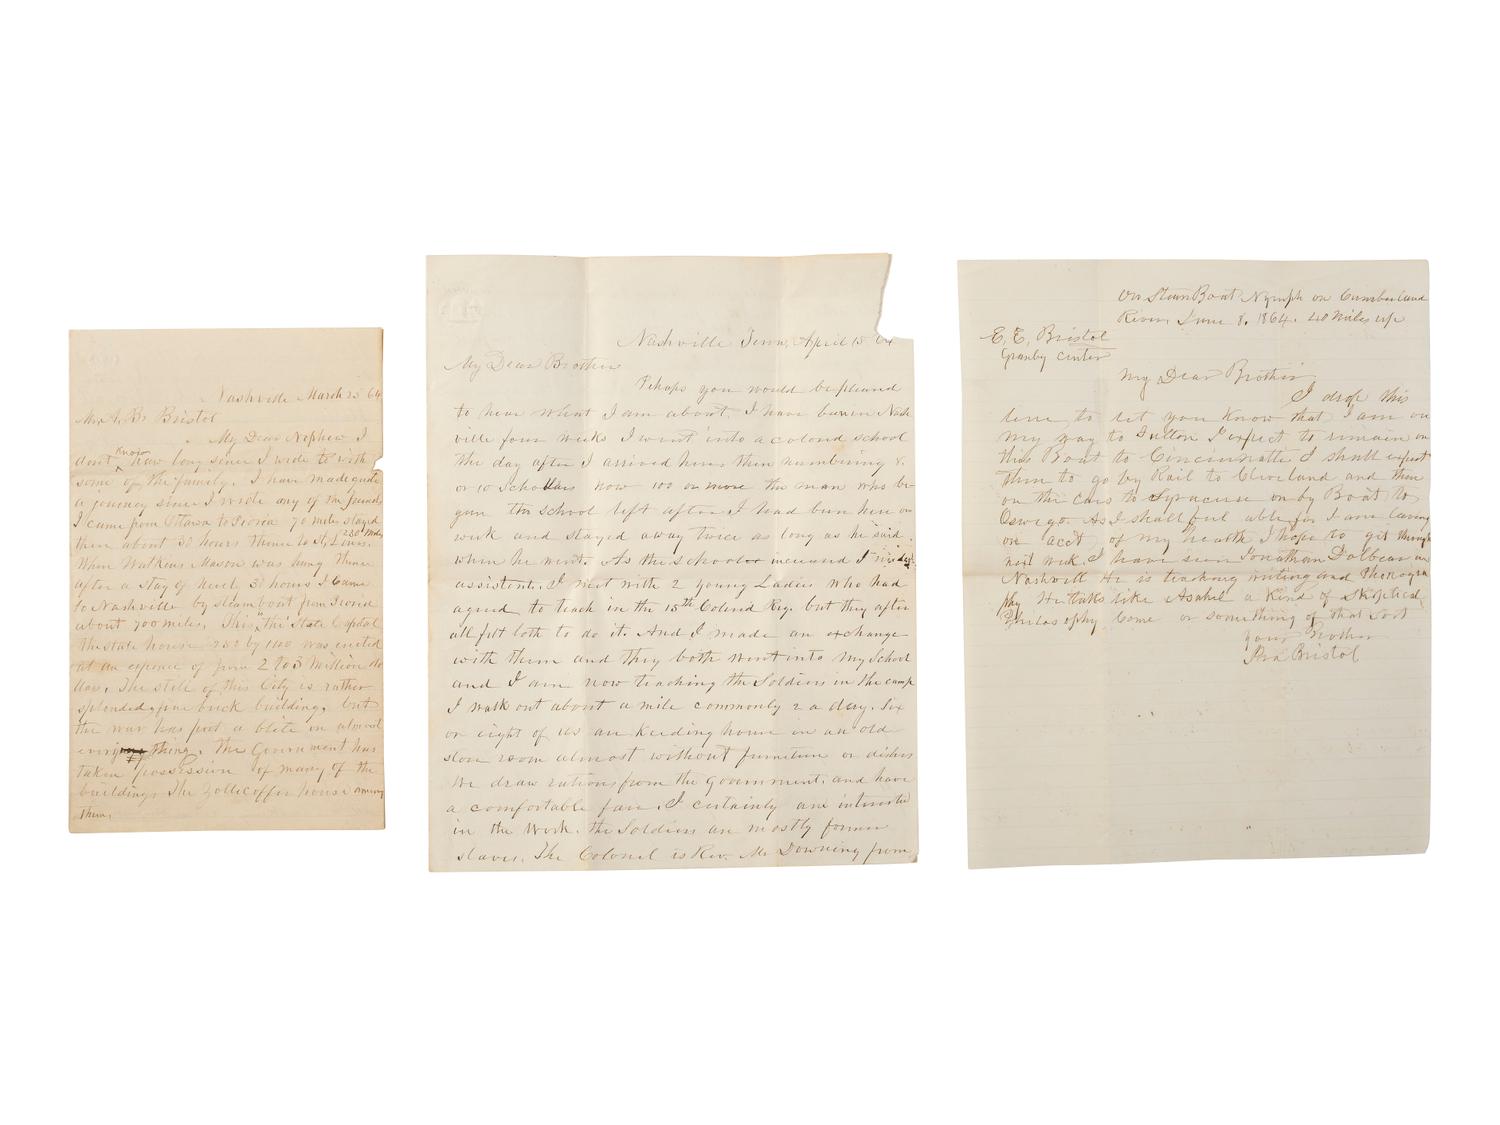 Nashville March 25 64
Mr. A. B. Bristol
My Dear Nephew I
dont know how long since I wrote to with
some of the family. I have made quite
a journey since I wrote any of the friends
I came from Ottawa to Peoria 70 miles stayed
there about 30 hours thence to St. Louis. 230 Miles
When Watkins Mason was hung thence
after a stay of next 30 hours I came
to Nashville by steamboat from Peoria
about 700 miles. This, "the State Capital
the state house 250 by 100 was erected
at an expence of from 2 to 3 Million do
llars. The stile of this City is rather
splended, fine brick building, but
the war has put a blite on almost
every thing. The Government has
taken possession of many of the
buildings The Zollicoffer house among
them.
Nashville Tenn, April 15 64
My Dear Brother
Pehaps you would be pleased
to hear what I am about. I have been in Nash
ville four weeks I went into a colord school
the day after I arrived here then numbering 8.
or 10 Schollars now 100 or more the man who be
gun the school left after I had been here one
week and stayed away twice as long as he said
when he went. As the school increased I needed
assistent. I met with 2 young Ladies who had
agreed to teach in the 15th Colord Reg. but they after
all felt loth to do it. And I made an exchange
with them and they both went into my School
and I am now teaching the Soldiers in the camp
I walk out about a mile commonly 2 a day. Six
or eight of us are keeding house in an old
store room almost without furniture or dishes
We draw rations from the government, and have
a comfortable fare. I certainly am interested
in the work. the Soldiers are mostly former
slaves. The Colonel is Rev. Mr Downing from
On Steam Boat Nymph on Cumberland
River June 8, 1864. 40 Miles up
E, E, Bristol
Granby Center
My Dear Brother
I drop this
line to let you know that I am on
my way to Fulton I expect to remain on
this Boat to Cincinnatte I shall expect
then to go by Rail to Cleveland and then
on the cars to Syracuse or by Boat to
Oswego. As I shall feel able for I am leaving
on acct of my health I hope to get through
next week. I have seen Jonathan Dolbear in
Nashvill He is teaching writing and Phenogra
phy He talks like Asahel a kind of Skeptical
Philosophy Come or something of that sort
your Brother
Ira Bristol